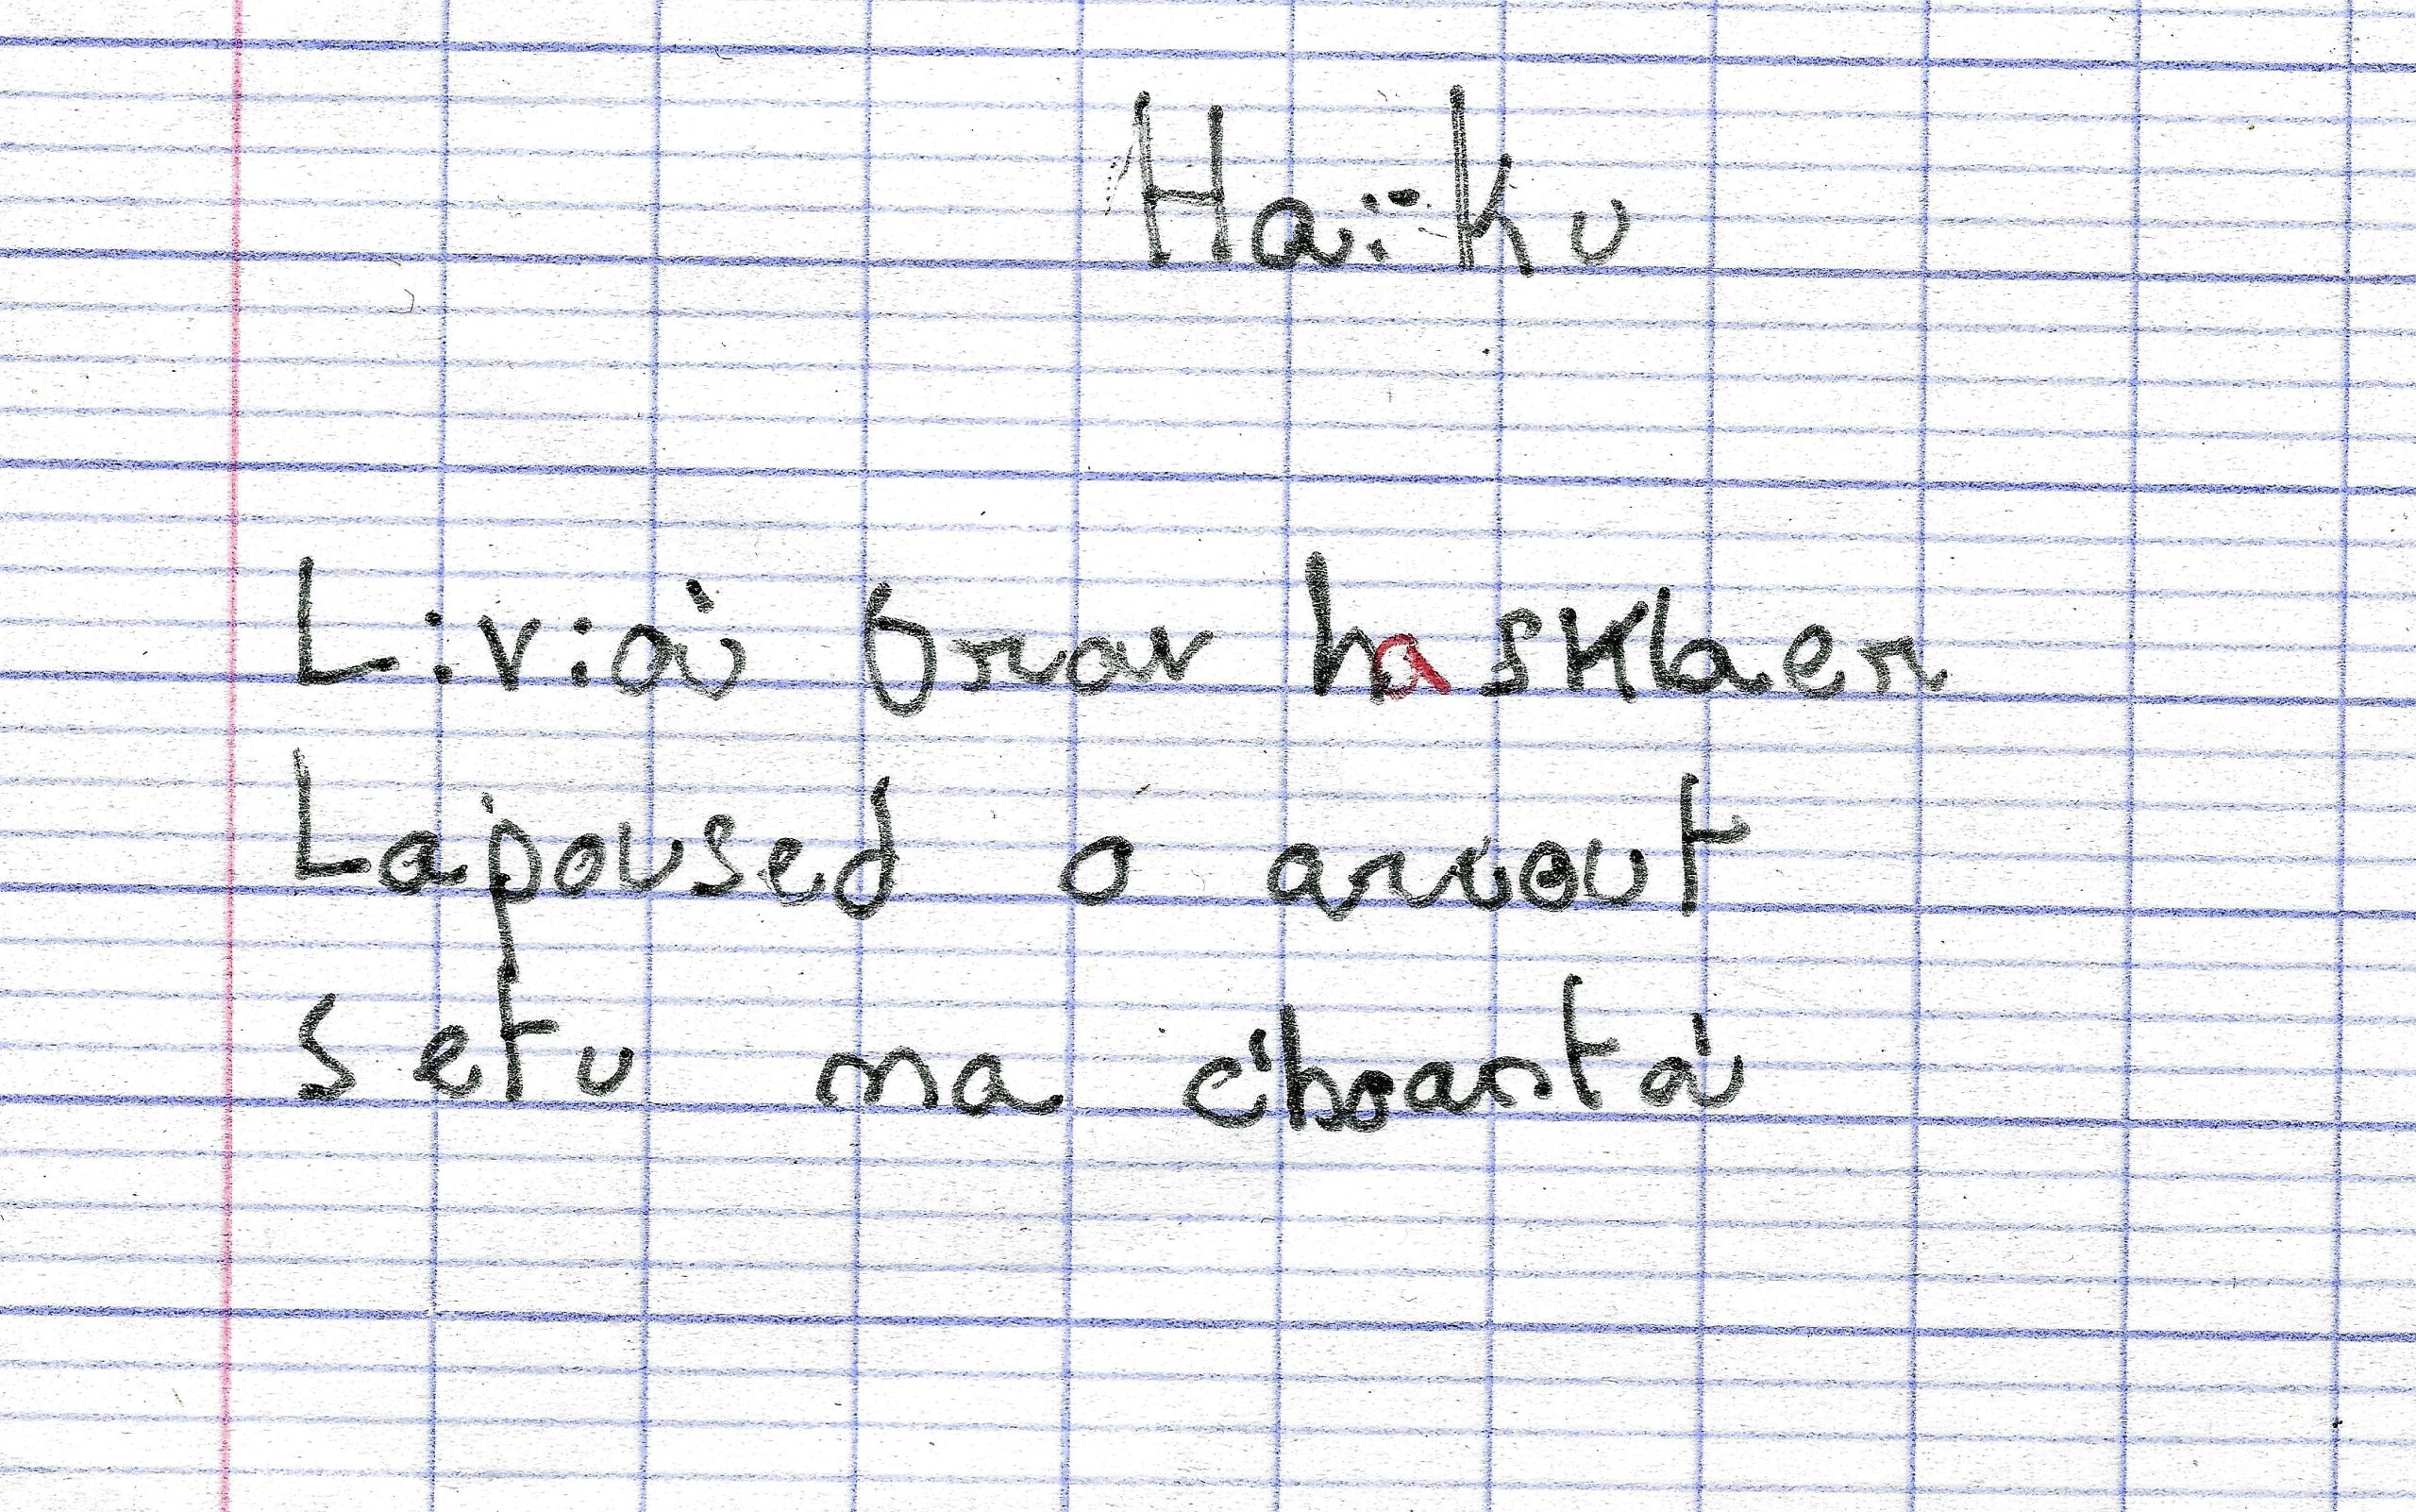 Haïku
Livioù brav ha sklaer
Lapoused o arvout
Setu ma c'hoantoù